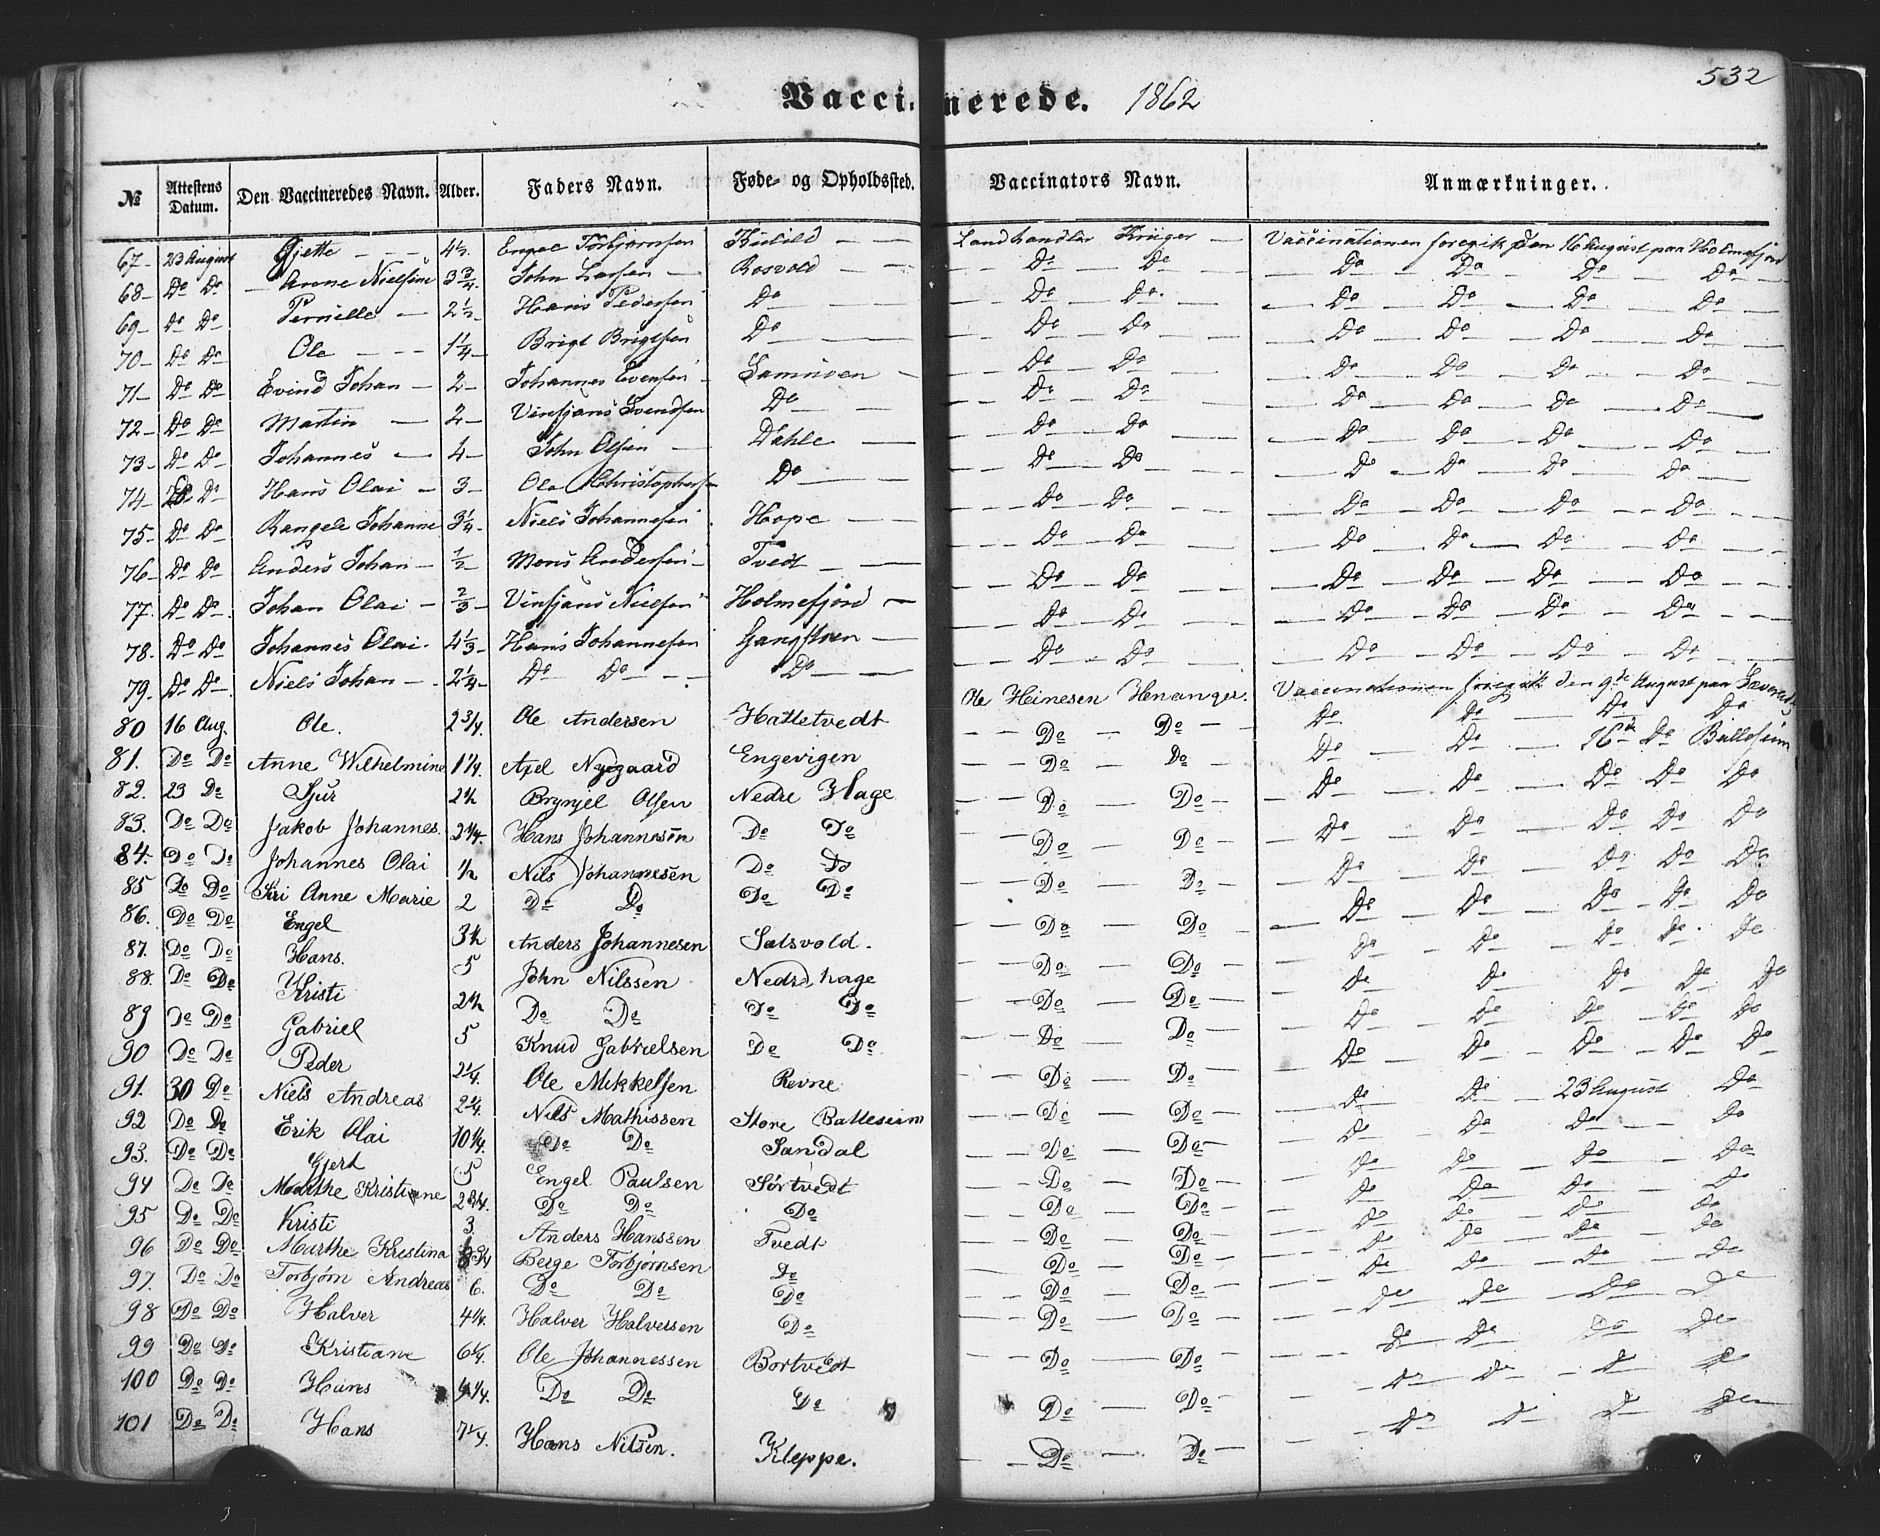 532
Vaccinerede. 1862
№ Attestens Datum. Den Vaccineredes Navn. Alder. Faders Navn. Føde- og Opholdssted. Vaccinators Navn. Anmærkninger.
67 23 August Gjette 4½ Engel Torbjørnsen Landhandler Krüger Vaccinationen foregik den 16 August paa Holmefjord
68 Do Do Anne Nielsine 3¾ John Larsen Rosvold Do Do Do Do Do Do
69 Do Do Pernille 2½ Hans Pedersen Do Do Do Do Do Do Do
70 Do Do Ole 1¼ Brigt Brigtsen Do Do Do Do Do Do Do
71 Do Do Evind Johan 2 Johannes Evensen Samnøen Do Do Do Do Do Do
72 Do Do Martin 2 Vinsjans Svendsen Do Do Do Do Do Do Do
73 Do Do Johannes 4 John Olsen Dahle Do Do Do Do Do Do
74 Do Do Hans Olai 3 Ole Christophersen Do Do Do Do Do Do Do
75 Do Do Rangele Johanne 3¼ Niels Johannesen Hope Do Do Do Do Do Do
76 Do Do Anders Johan ½ Mons Andersen Tvedt Do Do Do Do Do Do
77 Do Do Johan Olai ⅔ Vinsjans Nielsen Holmefjord Do Do Do Do Do Do
78 Do Do Johannes Olai 4⅓ Hans Johannesen Gangstøen Do Do Do Do Do Do
79 Do Do Niels Johan 2¼ Do Do Do Do Do Do Do Do Do
80 16 Aug. Ole. 2¾ Ole Andersen Hatletvedt Ole Heinesen Henanger. Vaccinationen foregik den 9de August paa
81. Do Do Anne Wilhelmine 1¼ Axel Nygaard Engevigen Do Do Do Do Do Do
82. 23 Do Sjur 2½ Brynjel Olsen Nedre Hage Do Do Do Do 16de Do
83. Do Do Jakob Johannes. 2¼ Hans Johannesen Do Do Do Do Do Do Do Do Do
84. Do Do Johannes Olai ½ Nils Johannesen Do Do Do Do Do Do Do Do Do
85 Do Do Siri Anne Marie 2 Do Do Do Do Do Do Do Do Do Do Do
86. Do Do Engel 3½ Anders Johannesen Sætsvold. Do Do Do Do Do Do Do
87. Do Do Hans. 5 John Nilssen Nedre hage Do Do Do Do Do Do Do
88. Do Do Kristi 2½ Do Do Do Do Do Do Do Do Do Do Do
89 Do Do Gabriel 5 Knud Gabrielsen Do Do Do Do Do Do Do Do Do
90 Do Do Peder 2¼. Ole Mikkelsen Revne Do Do Do Do Do Do Do
91. 30 Do Niels Andreas 2¼. Nils Mathissen Store Balleseim Do Do Do Do 23 August Do
92 Do Do Erik Olai 10¼. Do Do Sandal Do Do Do Do Do Do
93. Do Do Gjert 5 Engel Paulsen Sørtvedt Do Do Do Do Do Do
94 Do Do Marthe Kristiane 2¾. Do Do Do Do Do Do Do Do Do
95 Do Do Kristi 3 Anders Hanssen Tvedt Do Do Do Do Do Do
96 Do Do Marthe Kristina Berge Torbjørnsen Do Do Do Do Do Do Do
97. Do Do Torbjørn Andreas 6. Do Do Do Do Do Do Do Do Do
98 Do Do Halver 4¼. Halver Halversen Do Do Do Do Do Do Do
99 Do Do Kristiane 6¼. Ole Johannessen Bortvedt Do Do Do Do Do Do
100 Do Do Hans Do Do Do Do Do Do Do Do Do
101 Do Do Hans 7¼. Hans Nilsen. Kleppe. Do Do